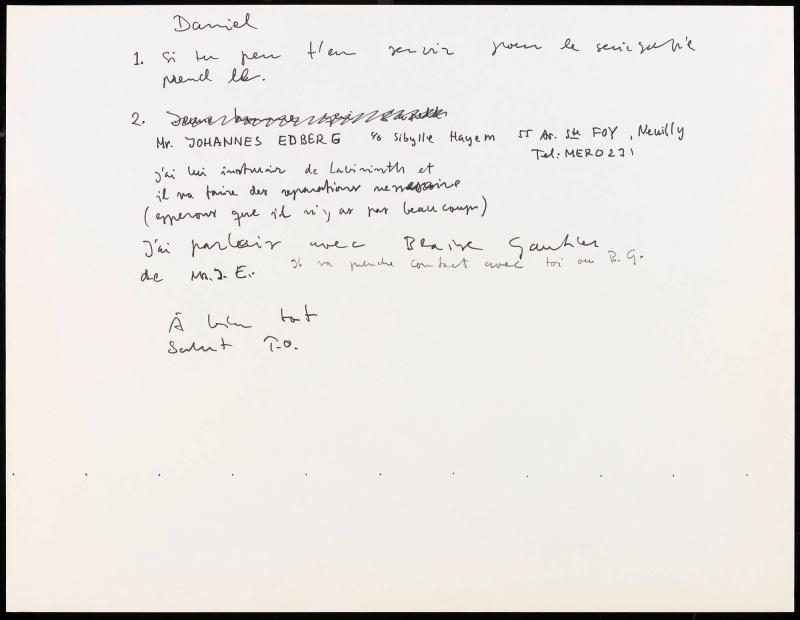 Daniel
1. Si tu peu t'en servir pour le serigraphie
prend le.
2.
Mr. JOHANNES EDBERG c/o Sibylle Hayem 55 Av. Ste FOY, Neuilly
Tel: MERO231
j'ai lui instruair de Labirinth et
il va faire des reparations
(esperons que il n'y as pas beaucoup)
J'ai parlair avec Blaise Gautier
de Mr. J. E. Il va prendre contact avec toi ou B. G.
Â bien tot
Salut T.O.